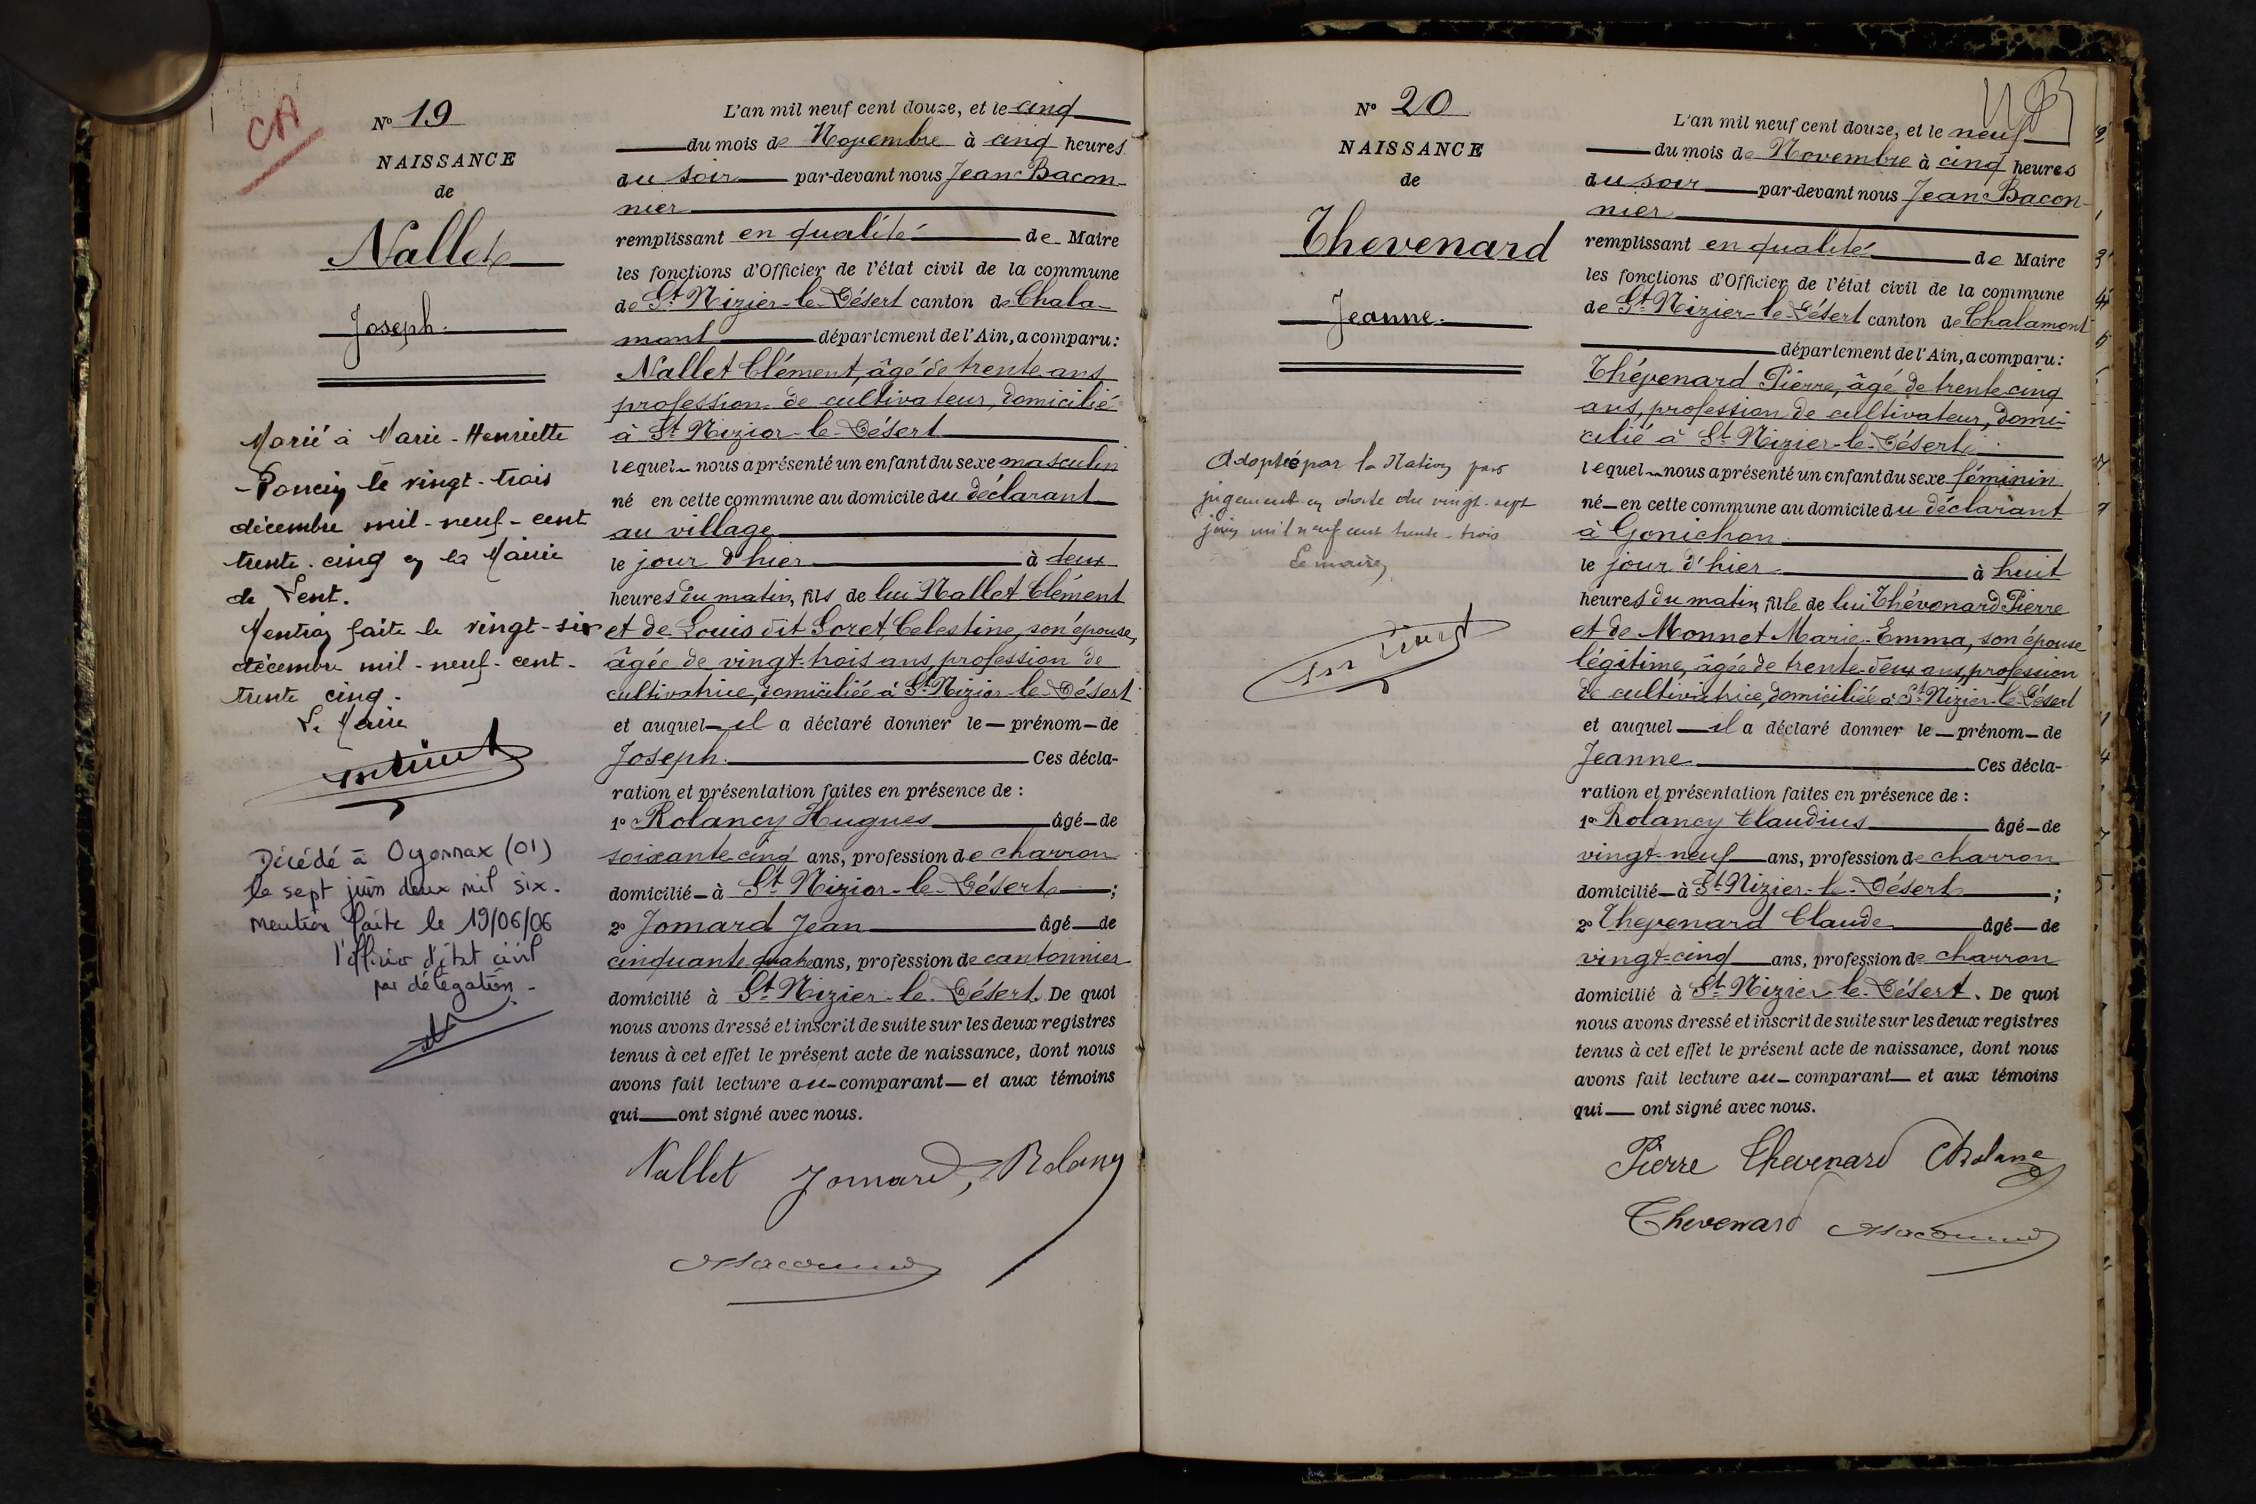 CA
N° 19
NAISSANCE
de
Nallet
Joseph.
Marié à Marie-Henriette
Poncin le vingt-trois
décembre mil-neuf-cent
trente-cinq en la Mairie
de Lent.
Mention faite le vingt-six
décembre mil-neuf-cent-
trente cinq.
Le Maire
Décédé à Oyonnax (01)
le sept juin deux mil six.
mention faite le 19/06/06
l'officier d'état civil
par délégation-
L'an mil neuf cent douze, et le cinq
du mois de Novembre à cinq heures
du soir par-devant nous Jean Bacon-
nier
remplissant en qualité de Maire
les fonctions d'Officier de l'état civil de la commune
de St Nizier-le-Désert canton de Chala-
mont département de l'Ain, a comparu:
Nallet Clément, âgé de trente ans
profession de cultivateur, domicilié
à St Nizier-le-Désert
lequel nous a présenté un enfant du sexe masculin
né en cette commune au domicile du déclarant
au village
le jour d'hier à deux
heures du matin, fils de lui Nallet Clément
et de Louis dit Loret Celestine, son épouse,
âgée de vingt-trois ans, profession de
cultivatrice, domiciliée à St Nizier-le-Désert
et auquel il a déclaré donner le prénom de
Joseph. Ces décla-
ration et présentation faites en présence de :
1° Rolancy Hugues âgé de
soixante cinq ans, profession de charron
domicilié à St Nizier-le-Désert ;
2° Jomard Jean âgé de
cinquante quatre ans, profession de cantonnier
domicilié à St Nizier-le-Désert. De quoi
nous avons dressé et inscrit de suite sur les deux registres
tenus à cet effet le présent acte de naissance, dont nous
avons fait lecture au comparant et aux témoins
qui ont signé avec nous.
Nallet Jomard, Rolancy
N° 20
NAISSANCE
de
Thevenard
Jeanne.
Adoptée par la Nation par
jugement en date du vingt-sept
juin mil neuf cent trente-trois
Le maire,
L'an mil neuf cent douze, et le neuf
du mois de Novembre à cinq heures
du soir par-devant nous Jean Bacon-
nier
remplissant en qualité de Maire
les fonctions d'Officier de l'état civil de la commune
de St Nizier-le-Désert canton de Chalamont
département de l'Ain, a comparu:
Thévenard Pierre, âgé de trente cinq
ans, profession de cultivateur, domi-
cilié à St Nizier-le-Désert
lequel nous a présenté un enfant du sexe féminin
né en cette commune au domicile du déclarant
à Gonichon
le jour d'hier à huit
heures du matin, fille de lui Thévenard Pierre
et de Monnet Marie-Emma, son épouse
légitime, âgée de trente-deux ans, profession
de cultivatrice, domiciliée à St Nizier-le-Désert
et auquel il a déclaré donner le prénom de
Jeanne Ces décla-
ration et présentation faites en présence de :
1° Rolancy Claudius âgé de
vingt-neuf ans, profession de charron
domicilié à St Nizier-le-Désert ;
2° Thevenard Claude âgé de
vingt-cinq ans, profession de charron
domicilié à St Nizier-le-Désert. De quoi
nous avons dressé et inscrit de suite sur les deux registres
tenus à cet effet le présent acte de naissance, dont nous
avons fait lecture au comparant et aux témoins
qui ont signé avec nous.
Pierre Thevenard
Thevenard